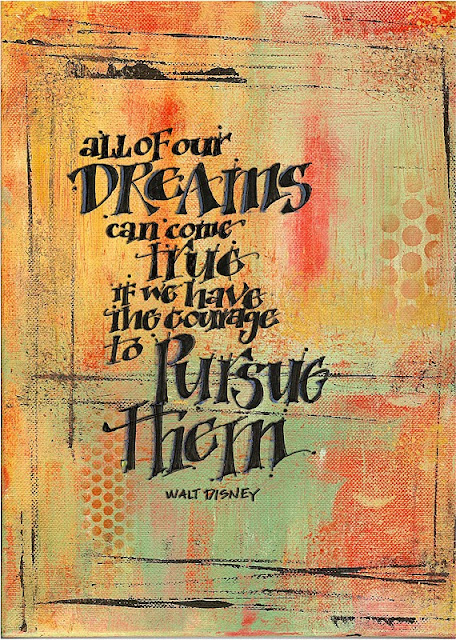 all of our
DREAMS
can come
true
if we have
the courage
to Pursue
Them
WALT DISNEY